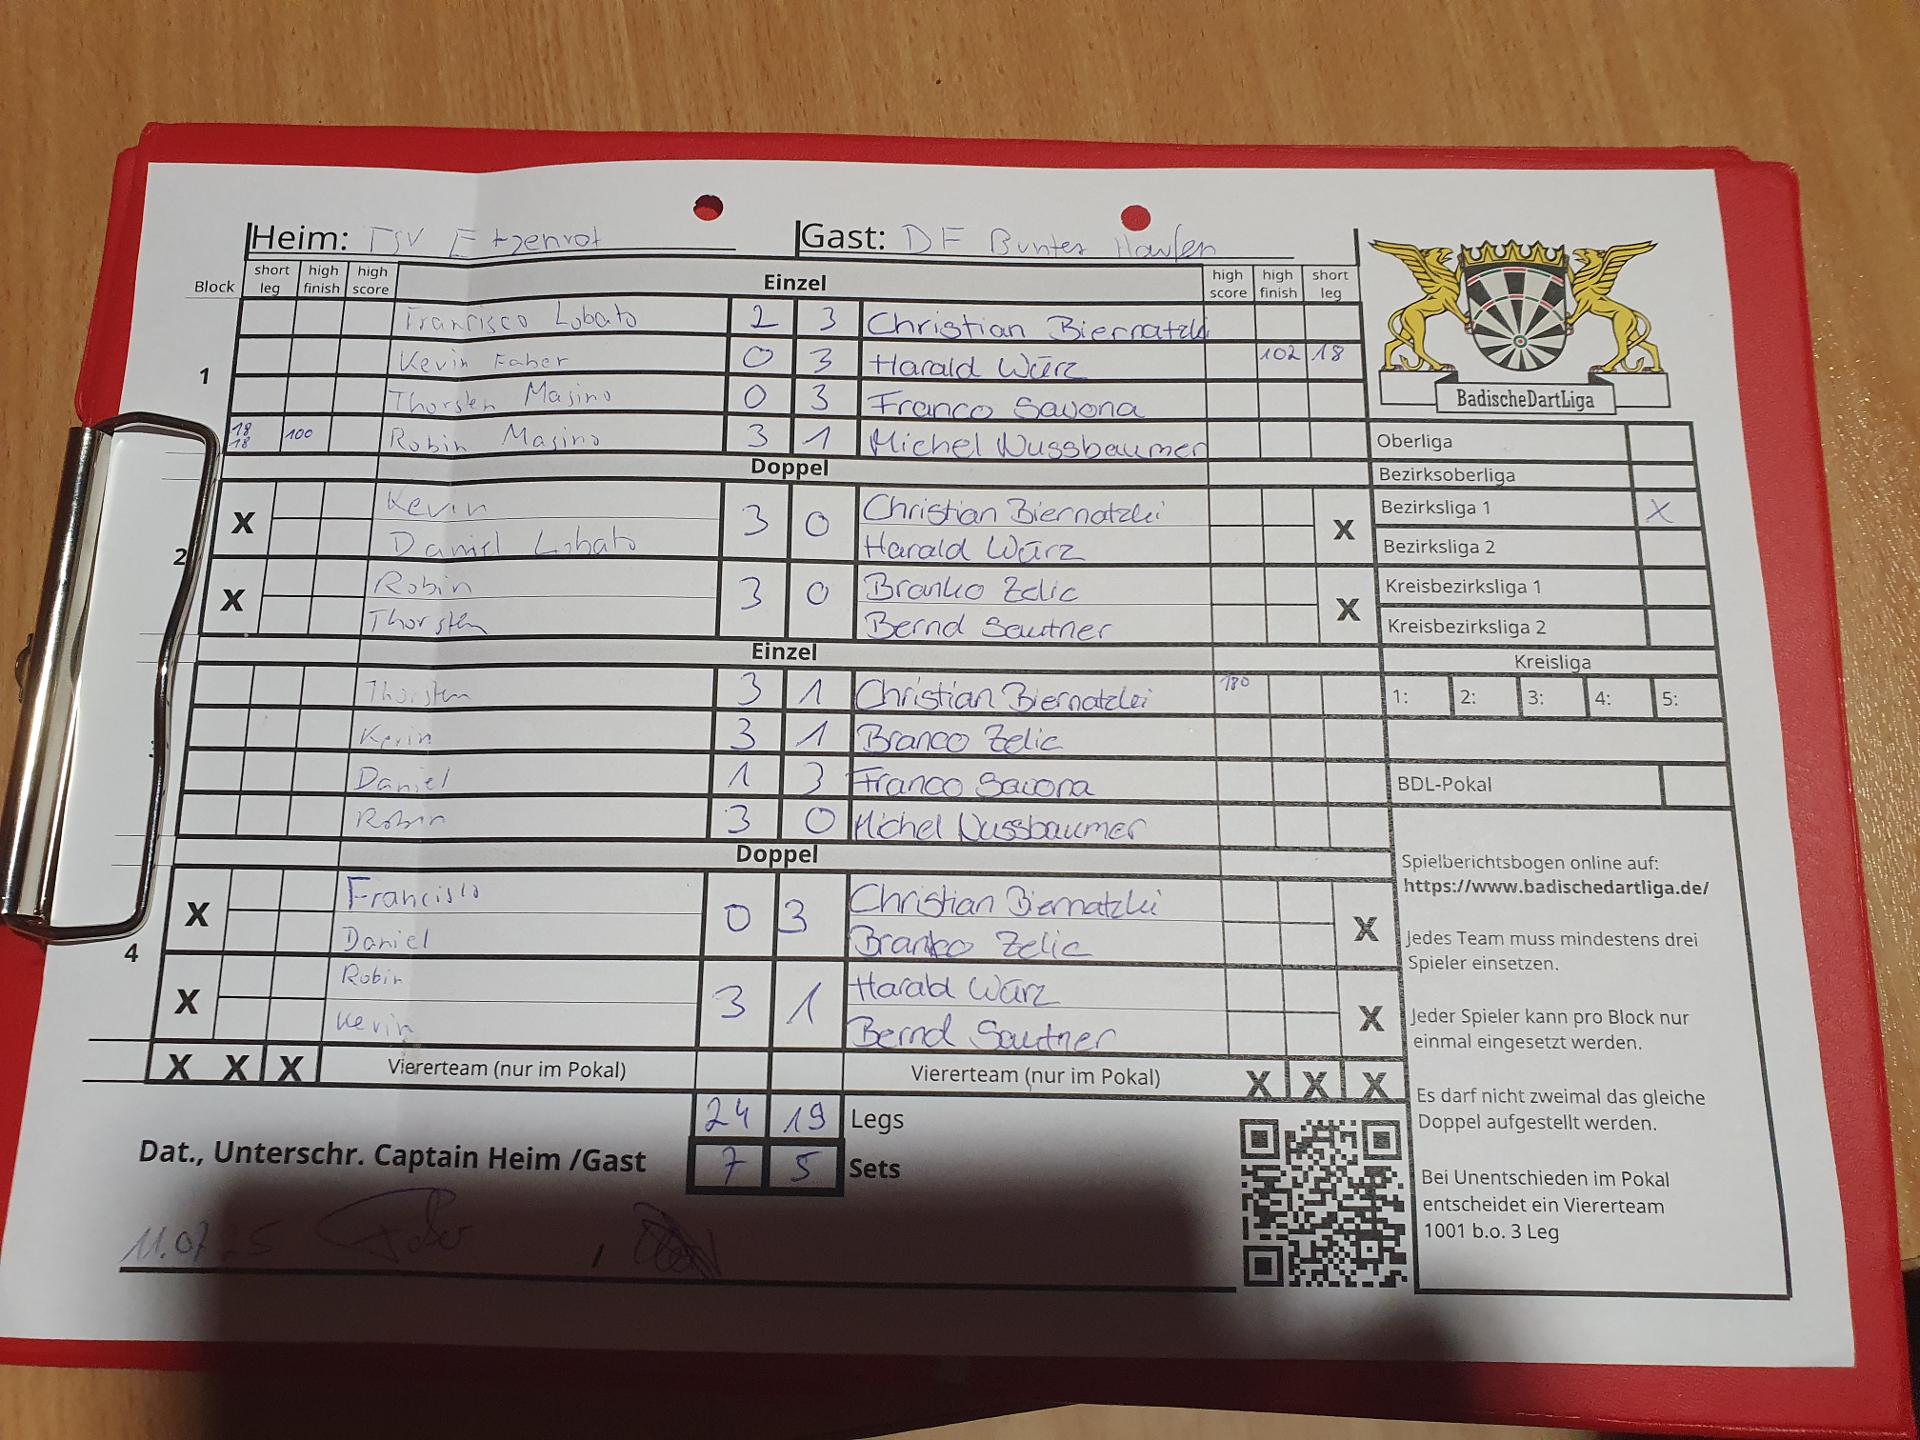 Heim: TSV Etzenrot Gast: DF Bunter Haufen
Block short leg high finish high score Einzel high score high finish short leg
Francisco Lobato 2 3 Christian Biernatzki
1 Kevin Faber 0 3 Harald Würz 102 18
Thorsten Masino 0 3 Franco Savona
18 18 100 Robin Masino 3 1 Michel Nussbaumer
Doppel
X Kevin 3 0 Christian Biernatzki X
Daniel Lobato Harald Würz
2
X Robin 3 0 Branko Zelic X
Thorsten Bernd Sautner
Einzel
Thorsten 3 1 Christian Biernatzki 180
3 Kevin 3 1 Branco Zelic
Daniel 1 3 Franco Savona
Robin 3 0 Michel Nussbaumer
Doppel
X Francisco 0 3 Christian Biernatzki X
Daniel Branko Zelic
4
X Robin 3 1 Harald Würz X
Kevin Bernd Sautner
X X X Viererteam (nur im Pokal) Viererteam (nur im Pokal) X X X
24 19 Legs
Dat., Unterschr. Captain Heim /Gast 7 5 Sets
11.07.25 Faber /
BadischeDartLiga
Oberliga
Bezirksoberliga
Bezirksliga 1 X
Bezirksliga 2
Kreisbezirksliga 1
Kreisbezirksliga 2
Kreisliga
1: 2: 3: 4: 5:
BDL-Pokal
Spielberichtsbogen online auf:
https://www.badischedartliga.de/
Jedes Team muss mindestens drei
Spieler einsetzen.
Jeder Spieler kann pro Block nur
einmal eingesetzt werden.
Es darf nicht zweimal das gleiche
Doppel aufgestellt werden.
Bei Unentschieden im Pokal
entscheidet ein Viererteam
1001 b.o. 3 Leg